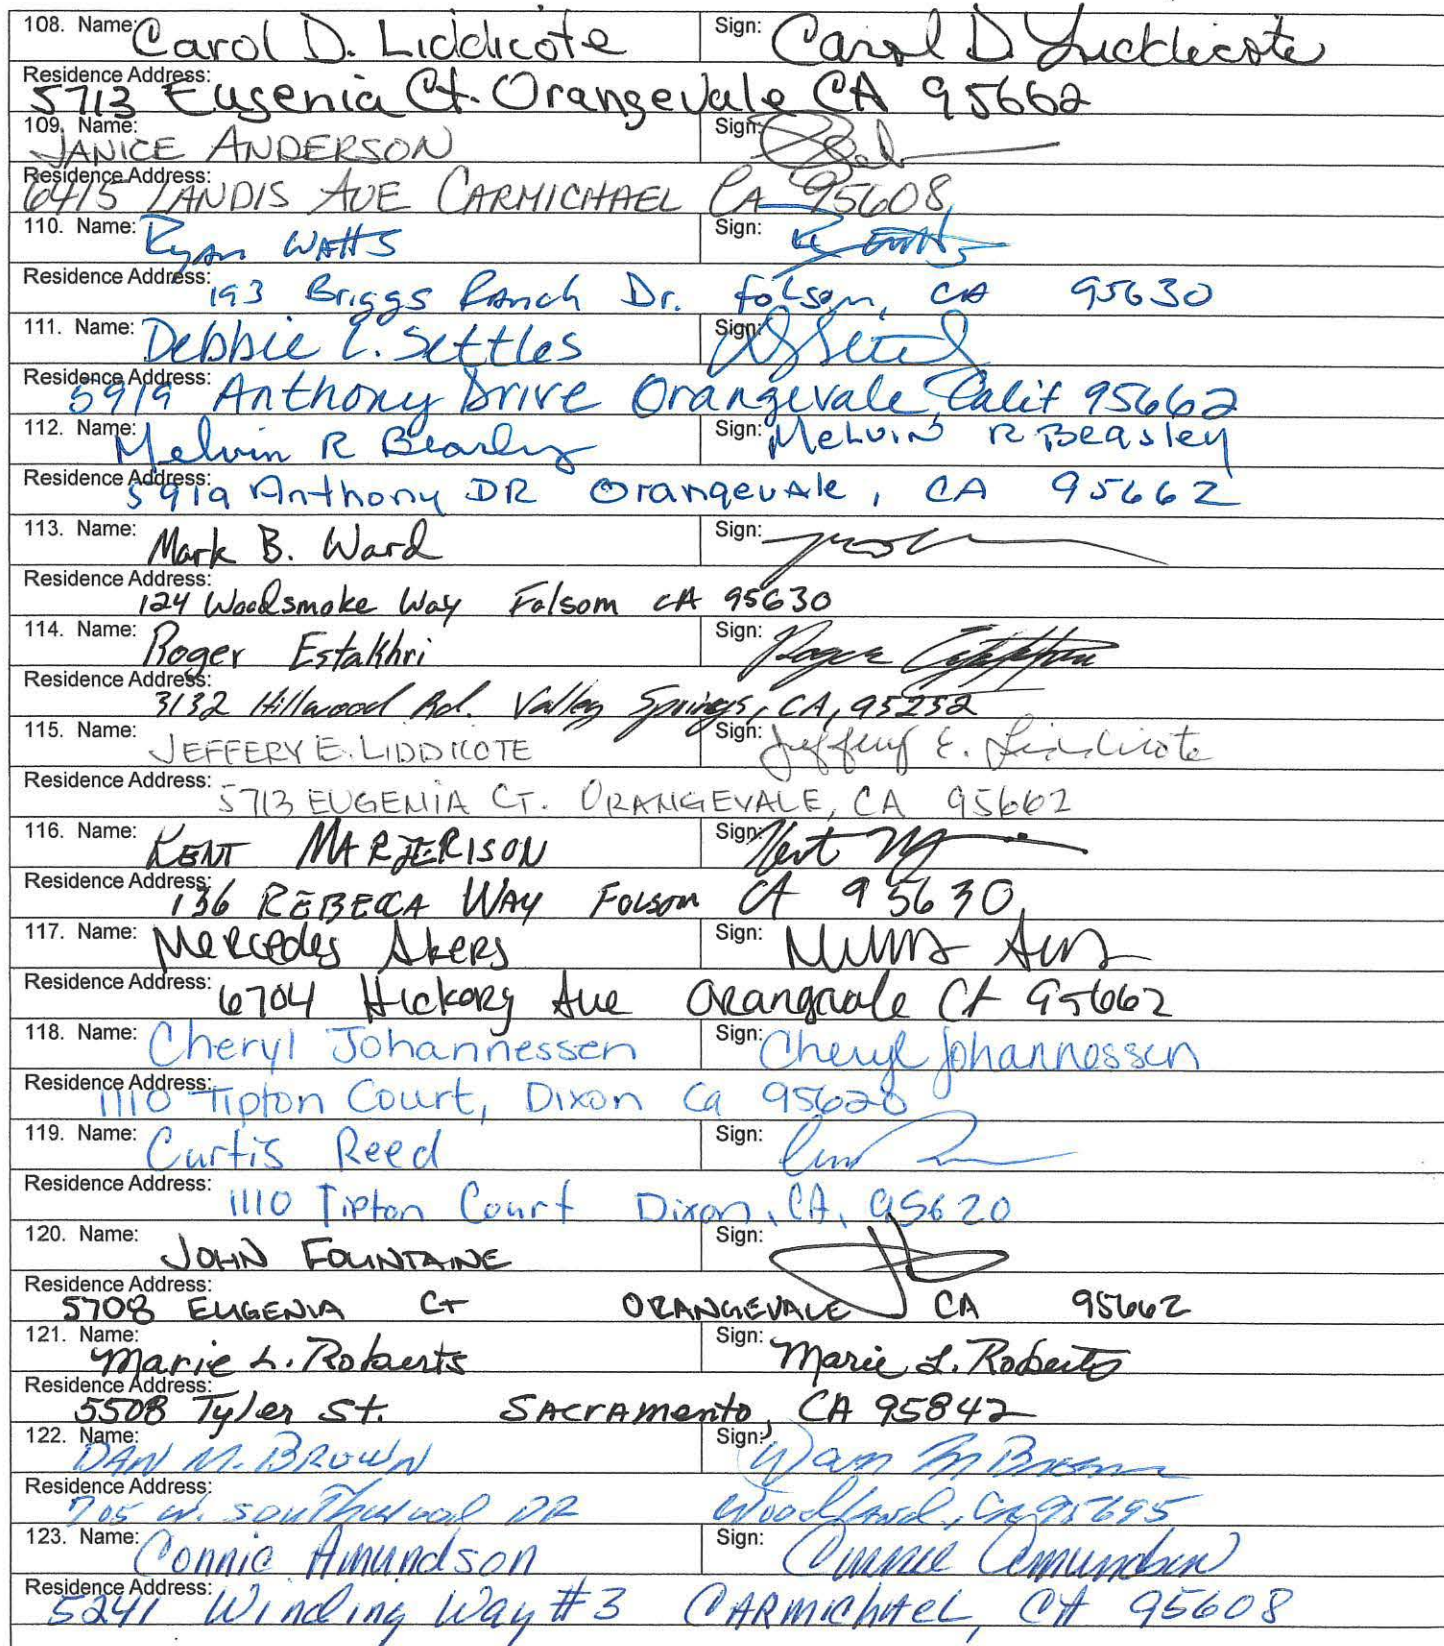 108. Name: Carol D. Liddicote Sign: Carol D Liddicote
Residence Address: 5713 Eugenia Ct. Orangevale CA 95662
109. Name: JANICE ANDERSON Sign:
Residence Address: 6415 LANDIS AVE CARMICHAEL CA 95608
110. Name: Ryan WATTS Sign:
Residence Address: 193 Briggs Ranch Dr. Folsom, CA 95630
111. Name: Debbie L. Settles Sign:
Residence Address: 5919 Anthony Drive Orangevale, Calif 95662
112. Name: Melvin R Beasley Sign: Melvin R Beasley
Residence Address: 5919 Anthony DR Orangevale, CA 95662
113. Name: Mark B. Ward Sign:
Residence Address: 124 Woodsmoke Way Folsom CA 95630
114. Name: Roger Estakhri Sign: Roger
Residence Address: 3132 Hillwood Rd. Valley Springs, CA, 95252
115. Name: JEFFERY E. LIDDICOTE Sign: Jeffery E. Liddicote
Residence Address: 5713 EUGENIA CT. ORANGEVALE, CA 95662
116. Name: KENT MARJERISON Sign: Kent
Residence Address: 136 REBECCA WAY FOLSOM CA 95630
117. Name: Mercedes Akers Sign:
Residence Address: 6704 Hickory Ave Orangevale CA 95662
118. Name: Cheryl Johannessen Sign: Cheryl Johannessen
Residence Address: 1110 Tipton Court, Dixon Ca 95620
119. Name: Curtis Reed Sign:
Residence Address: 1110 Tipton Court Dixon, CA, 95620
120. Name: JOHN FOUNTAINE Sign:
Residence Address: 5708 EUGENIA CT ORANGEVALE CA 95662
121. Name: Marie L. Roberts Sign: Marie L. Roberts
Residence Address: 5508 Tyler St. SACramento, CA 95842
122. Name: DAN M. BROWN Sign: Dan M Brown
Residence Address: 705 W. Southwood DR Woodland, Ca 95695
123. Name: Connie Amundson Sign: Connie Amundson
Residence Address: 5241 Winding Way #3 CARMICHAEL, CA 95608